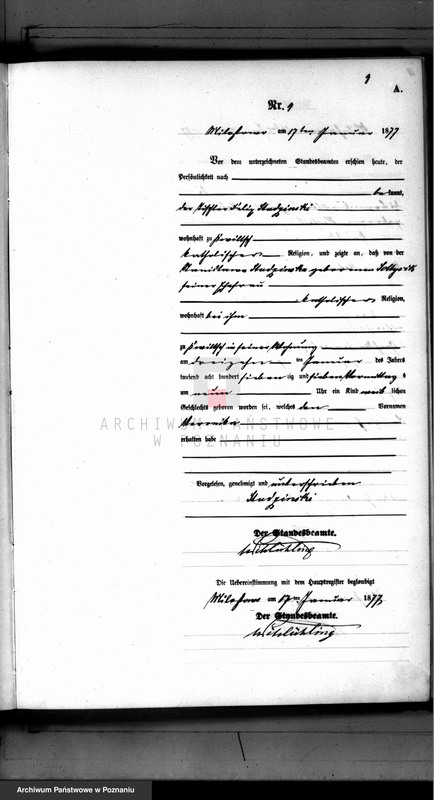 9
A.
Nr. 9
Miloslaw am 17ten Januar 1877
Vor dem unterzeichneten Standesbeamten erschien heute, der
Persönlichkeit nach
be kannt,
der Felix
wohnhaft zu
katholischer Religion, und zeigte an, daß von der
geborenen
seiner Ehefrau
katholischer Religion,
wohnhaft bei ihm
zu in seiner Wohnung
am dreizehn ten Januar des Jahres
tausend acht hundert sieben zig und sieben Vormittag s
um neun Uhr ein Kind weib lichen
Geschlechts geboren worden sei, welches den Vornamen
Veronika
erhalten habe
Vorgelesen, genehmigt und unterschrieben
Der Standesbeamte.
Die Uebereinstimmung mit dem Hauptregister beglaubigt
Miloslaw am 17ten Januar 1877
Der Standesbeamte.
ARCHIWUM PAŃSTWOWE
W POZNANIU
Archiwum Państwowe w Poznaniu